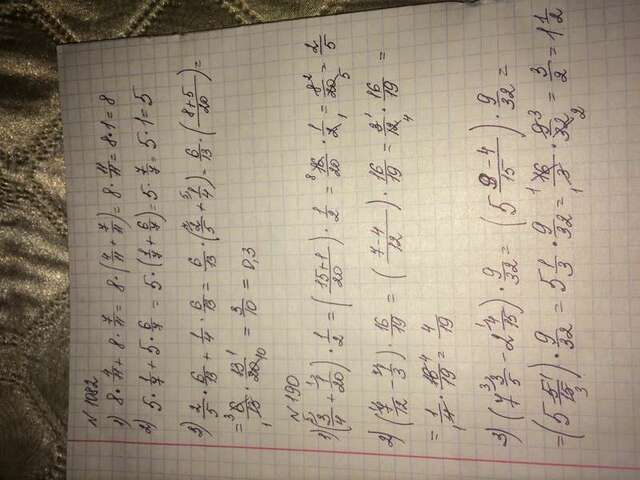 N 1082
1) 8 · 4/11 + 8 · 7/11 = 8 · (4/11 + 7/11) = 8 · 11/11 = 8 · 1 = 8
2) 5 · 1/7 + 5 · 6/7 = 5 · (1/7 + 6/7) = 5 · 7/7 = 5 · 1 = 5
3) 2/5 · 6/13 + 1/4 · 6/13 = 6/13 · (2/5 + 1/4) = 6/13 · (8+5/20) =
= 6/13 · 13/20 = 3/10 = 0,3
N 190
1) (3/4 + 1/20) · 1/2 = (15+1/20) · 1/2 = 16/20 · 1/2 = 8/20 = 2/5
2) (7/12 - 1/3) · 16/19 = (7-4/12) · 16/19 = 3/12 · 16/19 =
= 1/4 · 16/19 = 4/19
3) (7 3/5 - 2 4/15) · 9/32 = (5 9-4/15) · 9/32 =
= (5 5/15) · 9/32 = 5 1/3 · 9/32 = 16/3 · 9/32 = 3/2 = 1 1/2